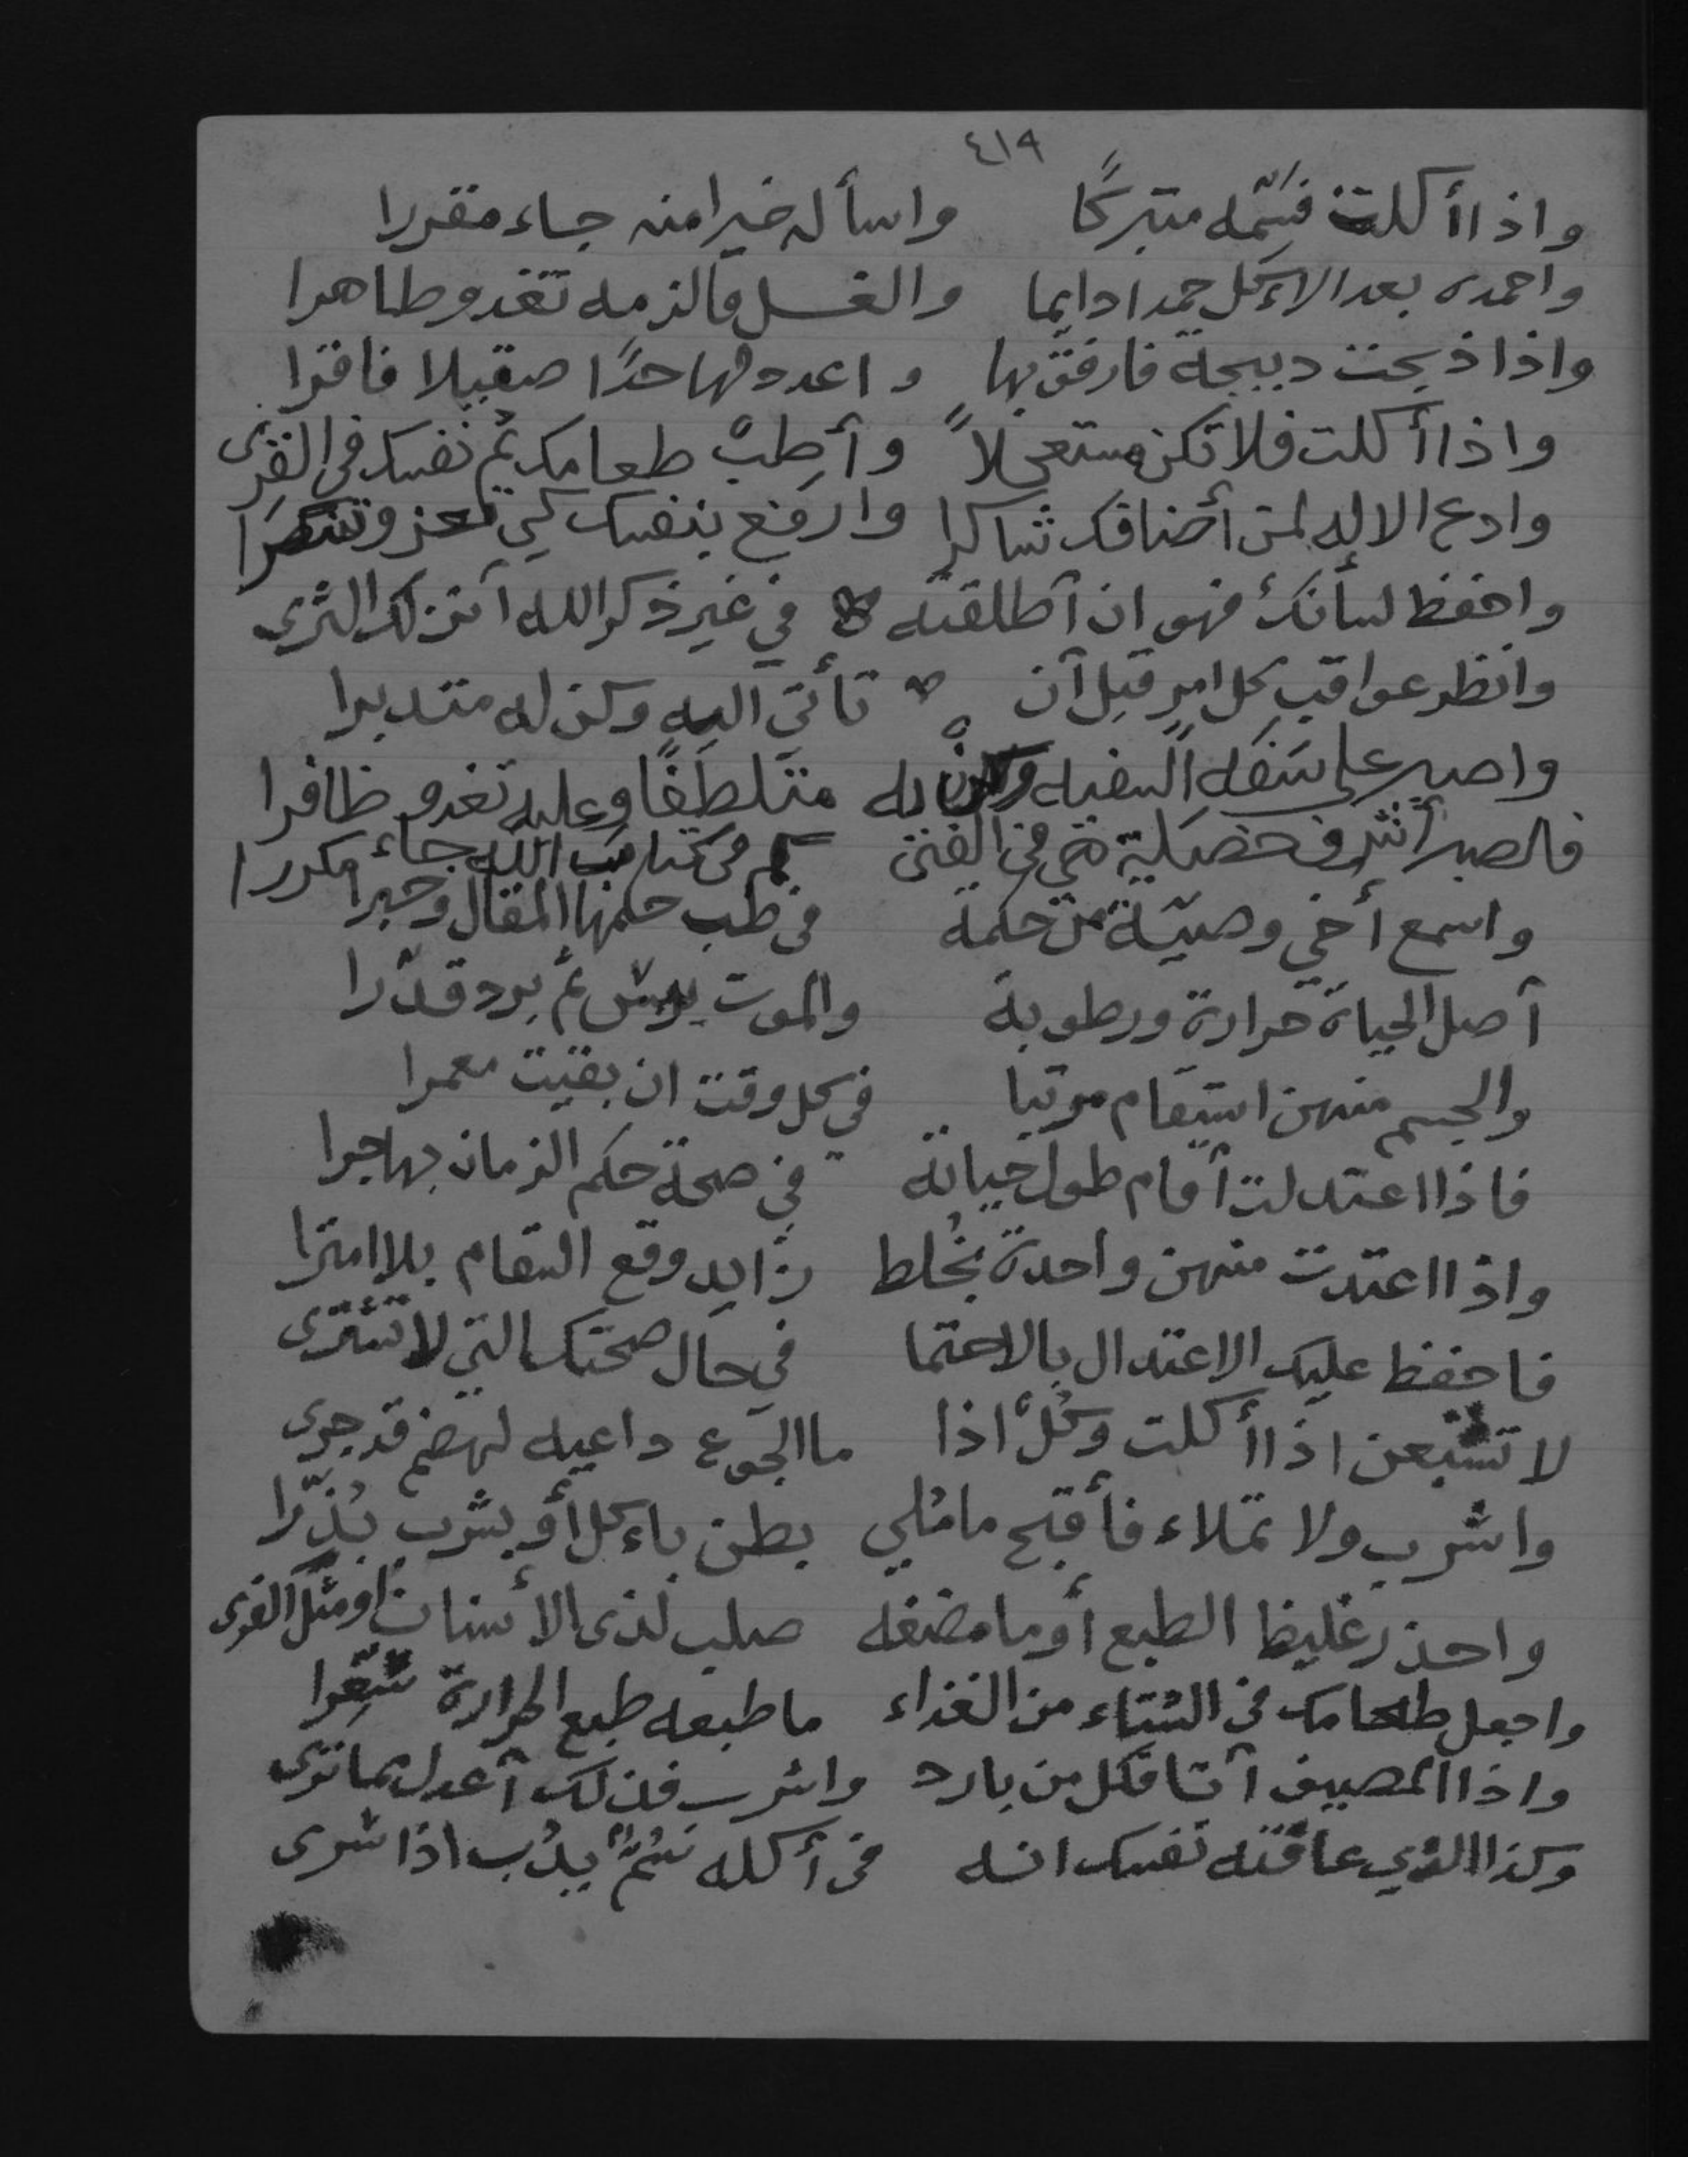 ٤١٩
واذا أكلت فسَمّه متبركًا واسأله خيرا منه جاء مقررا
واحمده بعد الاءكل حمدا دايما والغسل فالزمه تغدو طاهرا
واذا ذبحت دبيحة فارفق بها واعدد لها حدًا صقيلا فاقرا
واذا أكلت فلا تكن مستعجلاً وأطِبْ طعامك ثم نفسك في القرى
وادع الاله لمن أضافك شاكرا وارفع بنفسك كي تعز وتنصرا
واحفظ لسانك فهو ان أطلقته في غير ذكر الله أنزلك الثرى
وانظر عواقب كل امر قبل أن تأتي اليه وكن له متدبرا
واصبر على سَفَه السفيه وكن له متلطفًا وعليه تغدو ظافرا
فالصبر أشرف خصلة هي في الفتى كم في كتاب الله جاء مكررا
واسمع أخي وصيّة من حكمة في طب حكمها المقال وحبرا
أصل الحياة حرارة ورطوبة والموت يبس ثم برد قدّرا
والجسم منهن استقام مرتبا في كل وقت ان بقيت معمرا
فاذا اعتدلت أقام طول حياته في صحة حكم الزمان بها جرا
واذا اعتدت منهن واحدة بخُلط زايد وقع السقام بلا امترا
فاحفظ عليك الاعتدال بالاحتما في حال صحتك التي لا تشترى
لا تشبعن اذا أكلت وكُلْ اذا ما الجوع داعيه لهضم قد جرى
واشرب ولا تملاء فأقبح ما مُلي بطن باءكل أو بشرب بُذّرا
واحذر غليظا الطبع أو ما مضغه صلب لذى الأسنان او مثل الفرى
واجعل طعامك في الشتاء من الغذاء ما طبعه طبع الحرارة سُعِّرا
واذا المصيف أتا فكل من بارد واشرب فذلك أعدل ما ترى
وكذا الذي عافته نفسك انه في أكله سُمٌّ يدُب اذا سرى